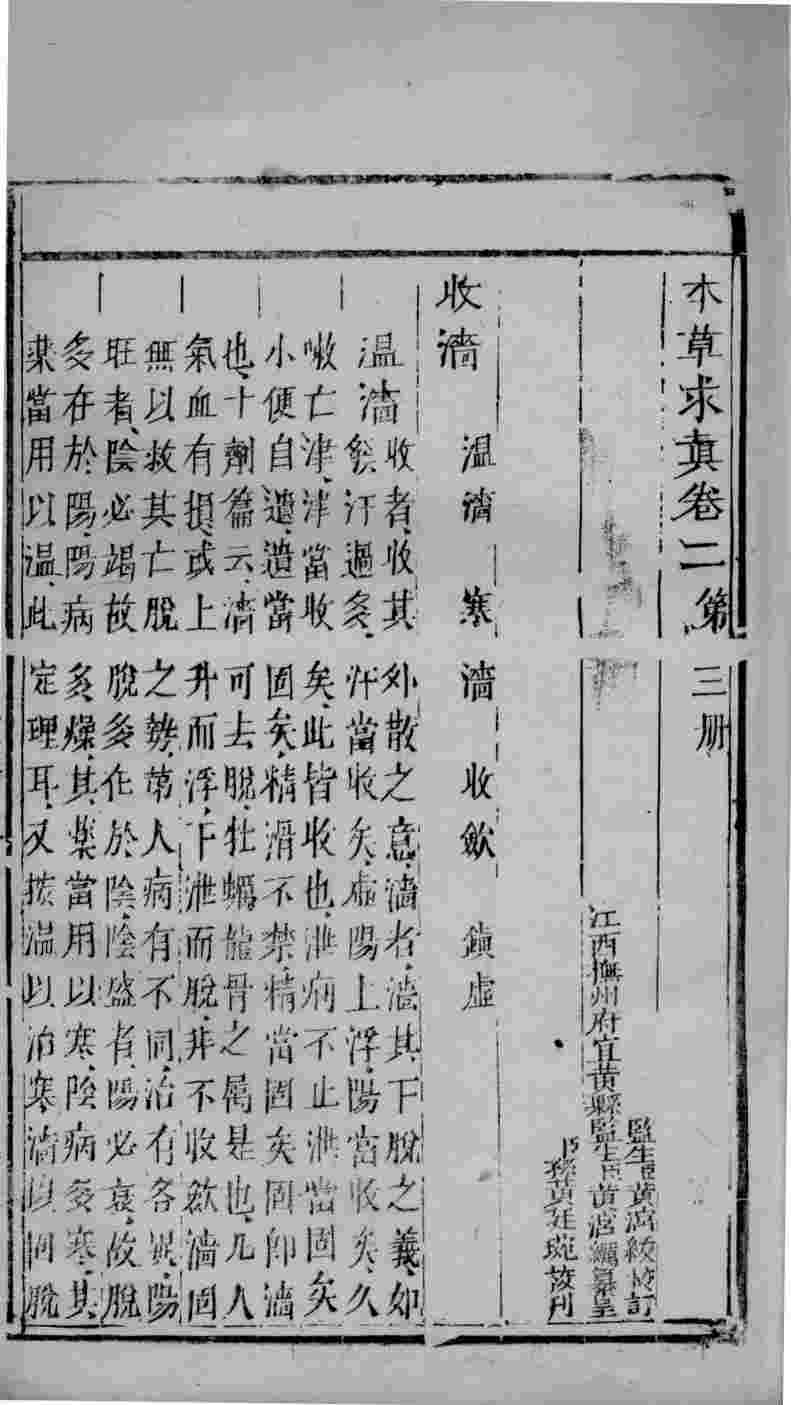 本草求真卷二第三册
監生黃宮紱校訂
江西撫州府宜黃縣監生臣黃宮繡纂呈
孫黃廷琬校刊
收濇 溫濇 寒濇 收歛 鎮虛
溫濇 收者收其外散之意濇者濇其下脫之義如
發汗過多汗當收矣虛陽上浮陽當收矣久
嗽亡津津當收矣此皆收也泄病不止泄當固矣
小便自遺遺當固矣精滑不禁精當固矣固即濇
也十劑篇云濇可去脫牡蠣龍骨之屬是也凡人
氣血有損或上升而浮下泄而脫非不收歛濇固
無以救其亡脫之勢第人病有不同治有各異陽
旺者陰必竭故脫多在於陰陰盛者陽必衰故脫
多在於陽陽病多燥其藥當用以寒陰病多寒其
藥當用以溫此定理耳又按溫以治寒濇以固脫